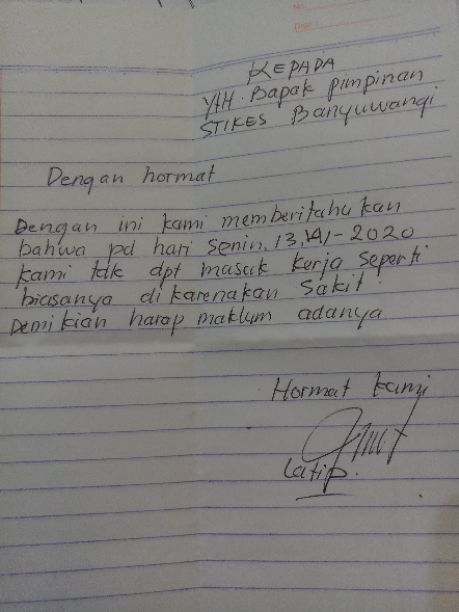 KEPADA
YtH. Bapak pimpinan
STIKES Banyuwangi
Dengan hormat
Dengan ini kami memberitahukan
bahwa pd hari Senin, 13, -2020
kami tdk dpt masuk kerja seperti
biasanya dikarenakan sakit.
Demikian harap maklum adanya
Hormat kami
Latip.